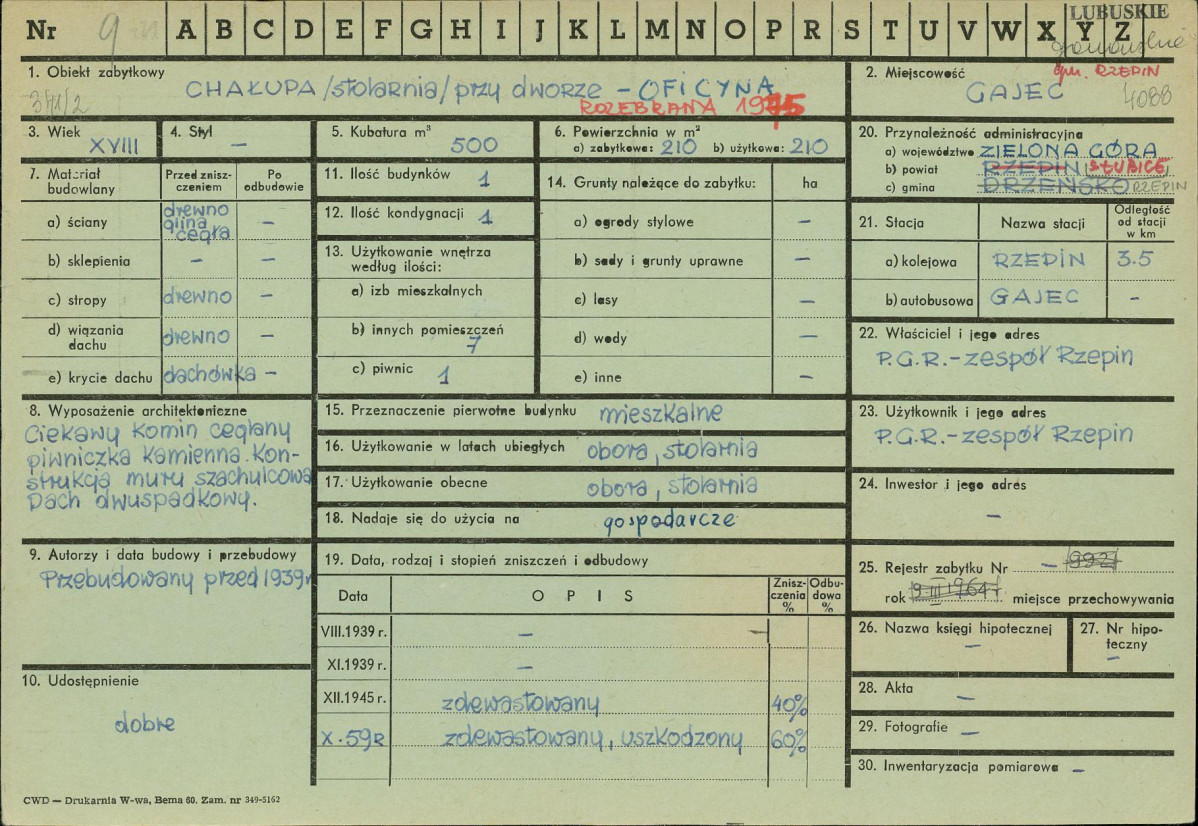 Nr 9 A B C D E F G H I J K L M N O P R S T U V W X Y Z LUBUSKIE
gm. RZEPIN
1. Obiekt zabytkowy
CHAŁUPA /stolarnia/ przy dworze - OFICYNA
ROZEBRANA 1975
2. Miejscowość
GAJEC
4088
3. Wiek
XVIII
4. Styl
—
5. Kubatura m³
500
6. Powierzchnia w m²
a) zabytkowa: 210 b) użytkowa: 210
7. Materiał budowlany
Przed znisz-
czeniem
Po
odbudowie
a) ściany drewno glina cegła —
b) sklepienia — —
c) stropy drewno —
d) wiązania dachu drewno —
e) krycie dachu dachówka —
8. Wyposażenie architektoniczne
Ciekawy komin ceglany
piwniczka kamienna. Kon-
strukcja muru szachulcowa
Dach dwuspadkowy.
9. Autorzy i data budowy i przebudowy
Przebudowany przed 1939r
10. Udostępnienie
dobre
11. Ilość budynków 1
12. Ilość kondygnacji 1
13. Użytkowanie wnętrza
według ilości:
a) izb mieszkalnych
b) innych pomieszczeń
7
c) piwnic 1
14. Grunty należące do zabytku: ha
a) ogrody stylowe —
b) sady i grunty uprawne —
c) lasy —
d) wody —
e) inne —
15. Przeznaczenie pierwotne budynku mieszkalne
16. Użytkowanie w latach ubiegłych obora, stolarnia
17. Użytkowanie obecne obora, stolarnia
18. Nadaje się do użycia na gospodarcze
19. Data, rodzaj i stopień zniszczeń i odbudowy
Data OPIS Znisz-
czenia
% Odbu-
dowa
%
VIII.1939 r. —
XI.1939 r. —
XII.1945 r. zdewastowany 40%
X.59R zdewastowany, uszkodzony 60%
20. Przynależność administracyjna
a) województwo ZIELONA GÓRA
b) powiat RZEPIN SŁUBICE
c) gmina DRZEŃSKO RZEPIN
21. Stacja Nazwa stacji Odległość
od stacji
w km
a) kolejowa RZEPIN 3.5
b) autobusowa GAJEC —
22. Właściciel i jego adres
P.G.R. - zespół Rzepin
23. Użytkownik i jego adres
P.G.R. - zespół Rzepin
24. Inwestor i jego adres
—
25. Rejestr zabytku Nr — 992
rok 9 III 1964 r miejsce przechowywania
26. Nazwa księgi hipotecznej
—
27. Nr hipo-
teczny
—
28. Akta —
29. Fotografie —
30. Inwentaryzacja pomiarowa —
CWD — Drukarnia W-wa, Bema 60. Zam. nr 349-5162